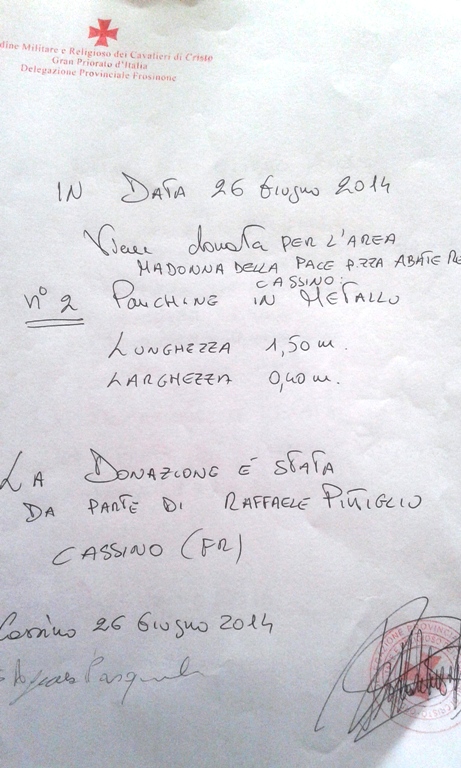 dine Militare e Religioso dei Cavalieri di Cristo
Gran Priorato d'Italia
Delegazione Provinciale Frosinone
IN DATA 26 Giugno 2014
Viene donata PER L'AREA
MADONNA DELLA PACE P.ZZA ABATE RE
CASSINO:
n° 2 PANCHINE IN METALLO
LUNGHEZZA 1,50 m.
LARGHEZZA 0,40 m.
LA DONAZIONE È STATA
DA PARTE DI RAFFAELE
CASSINO (FR)
Cassino 26 Giugno 2014